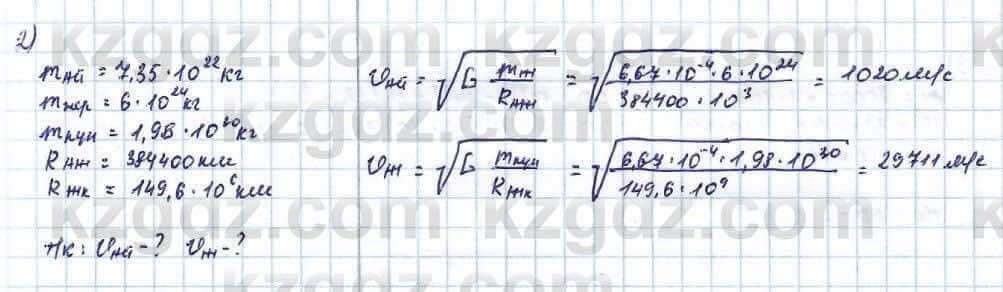 2)
m_ай = 7,35 · 10^22 кг
m_жер = 6 · 10^24 кг
m_күн = 1,98 · 10^30 кг
R_аж = 384400 км
R_жк = 149,6 · 10^6 км
т/к: υ_ай - ? υ_ж - ?
υ_ай = √(G m_ж / R_аж) = √(6,67 · 10^-4 · 6 · 10^24 / 384400 · 10^3) = 1020 м/с
υ_ж = √(G m_күн / R_жк) = √(6,67 · 10^-4 · 1,98 · 10^30 / 149,6 · 10^9) = 29711 м/с
kzgdz.com